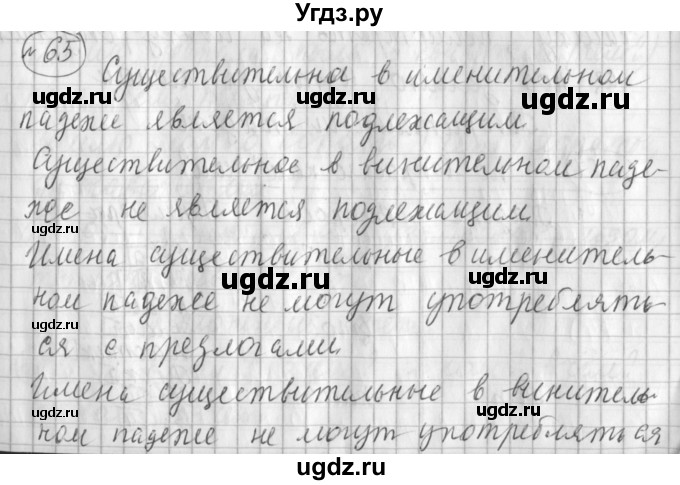 Угдз.ру
№ 65
Существительна в именительном
падеже является подлежащим
Существительное в винительном паде-
же не является подлежащим
Имена существительные в именитель-
ном падеже не могут употреблять-
ся с предлогами
Имена существительные в винитель-
ном падеже не могут употребляться
ugdz.ru
ugdz.ru
ugdz.ru
ugdz.ru
ugdz.ru
ugdz.ru
ugdz.ru
ugdz.ru
ugdz.ru
ugdz.ru
ugdz.ru
ugdz.ru
ugdz.ru